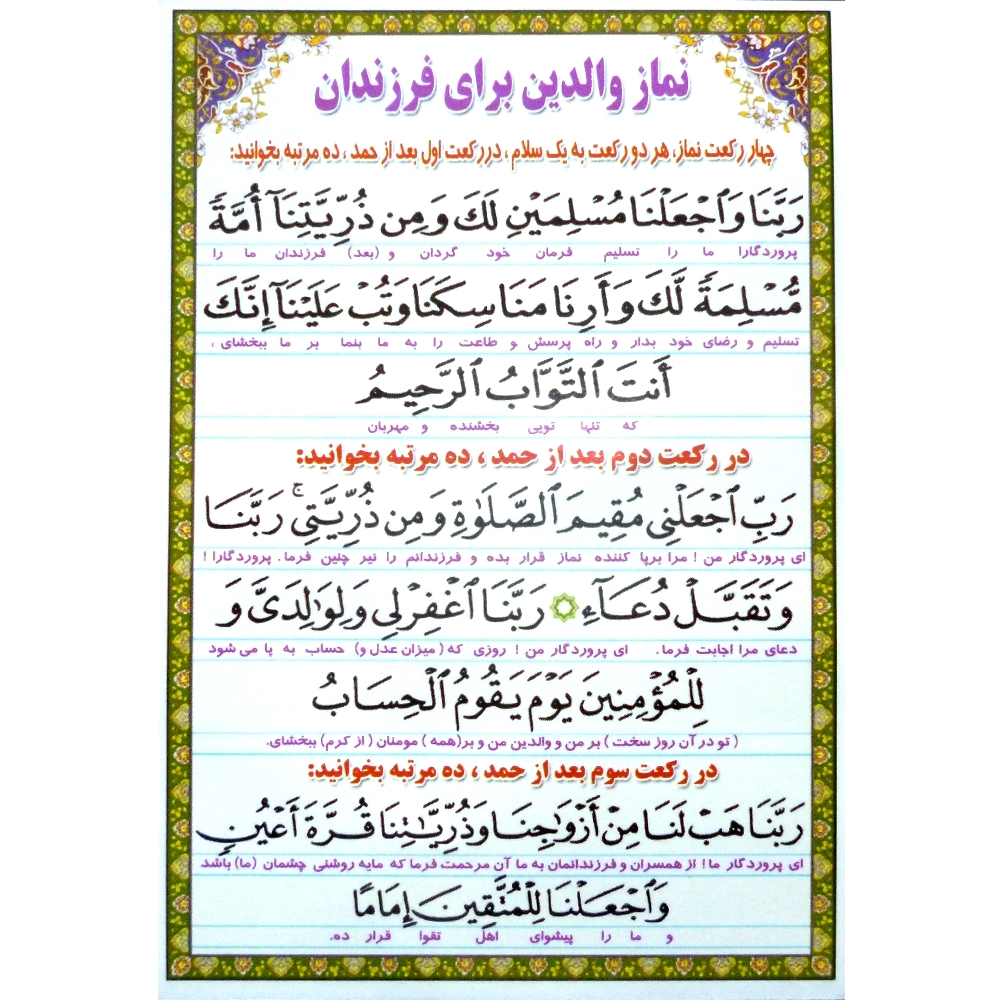 نماز والدین برای فرزندان
چهار رکعت نماز، هر دو رکعت به یک سلام ، در رکعت اول بعد از حمد ، ده مرتبه بخوانید:
رَبَّنَا وَٱجْعَلْنَا مُسْلِمَيْنِ لَكَ وَمِن ذُرِّيَّتِنَآ أُمَّةً
پروردگارا ما را تسلیم فرمان خود گردان و (بعد) فرزندان ما را
مُّسْلِمَةً لَّكَ وَأَرِنَا مَنَاسِكَنَا وَتُبْ عَلَيْنَآ إِنَّكَ
تسلیم و رضای خود بدار و راه پرسش و طاعت را به ما بنما بر ما ببخشای ،
أَنتَ ٱلتَّوَّابُ ٱلرَّحِيمُ
که تنها تویی بخشنده و مهربان
در رکعت دوم بعد از حمد ، ده مرتبه بخوانید:
رَبِّ ٱجْعَلْنِى مُقِيمَ ٱلصَّلَوٰةِ وَمِن ذُرِّيَّتِى ۚ رَبَّنَا
ای پروردگار من ! مرا برپا کننده نماز قرار بده و فرزندانم را نیر چنین فرما. پروردگارا !
وَتَقَبَّلْ دُعَآءِ ۞ رَبَّنَا ٱغْفِرْ لِى وَلِوَٰلِدَىَّ وَ
دعای مرا اجابت فرما. ای پروردگار من ! روزی که ( میزان عدل و) حساب به پا می شود
لِلْمُؤْمِنِينَ يَوْمَ يَقُومُ ٱلْحِسَابُ
( تو در آن روز سخت ) بر من و والدین من و بر(همه ) مومنان ( از کرم) ببخشای.
در رکعت سوم بعد از حمد ، ده مرتبه بخوانید:
رَبَّنَا هَبْ لَنَا مِنْ أَزْوَٰجِنَا وَذُرِّيَّـٰتِنَا قُرَّةَ أَعْيُنٍ
ای پروردگار ما! از همسران و فرزندانمان به ما آن مرحمت فرما که مایه روشنی چشمان (ما) باشد
وَٱجْعَلْنَا لِلْمُتَّقِينَ إِمَامًا
و ما را پیشوای اهل تقوا قرار ده.